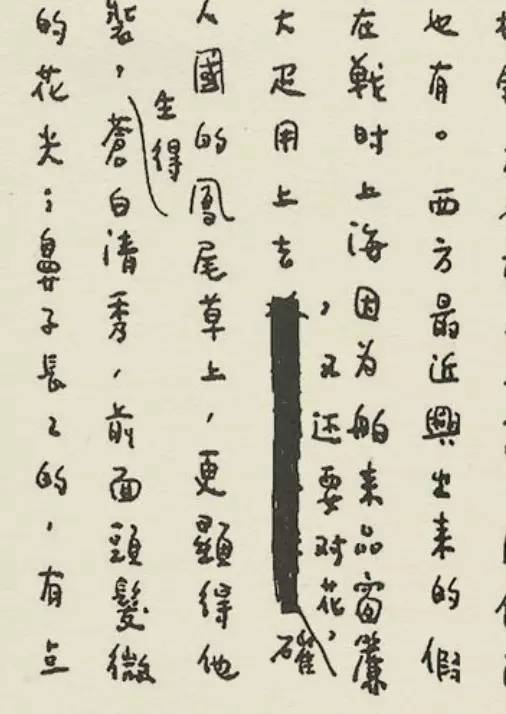 也有。西方最近興出来的假
在戰时上海因为舶来品窗簾
，又还要对花，
大疋用上去
確
人國的鳳尾草上，更顯得他
生得
装，蒼白清秀，前面頭髮微
的花尖；鼻子長〻的，有点